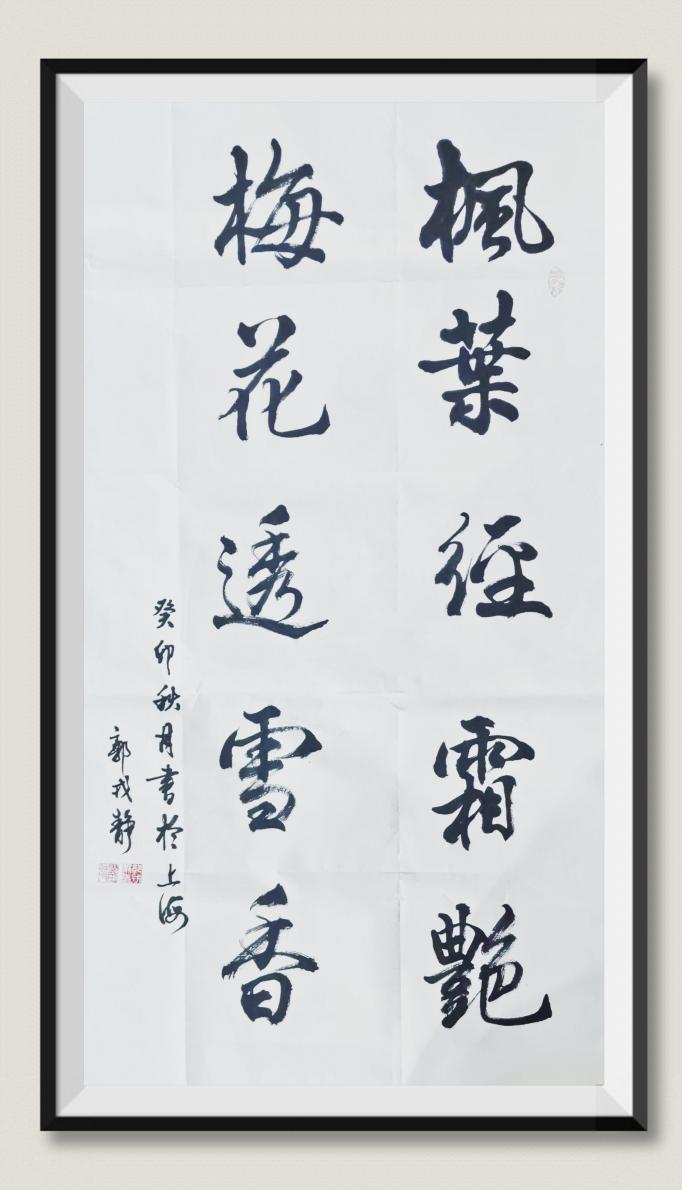 楓葉經霜艷
梅花透雪香
癸卯秋月書於上海
郭戎靜